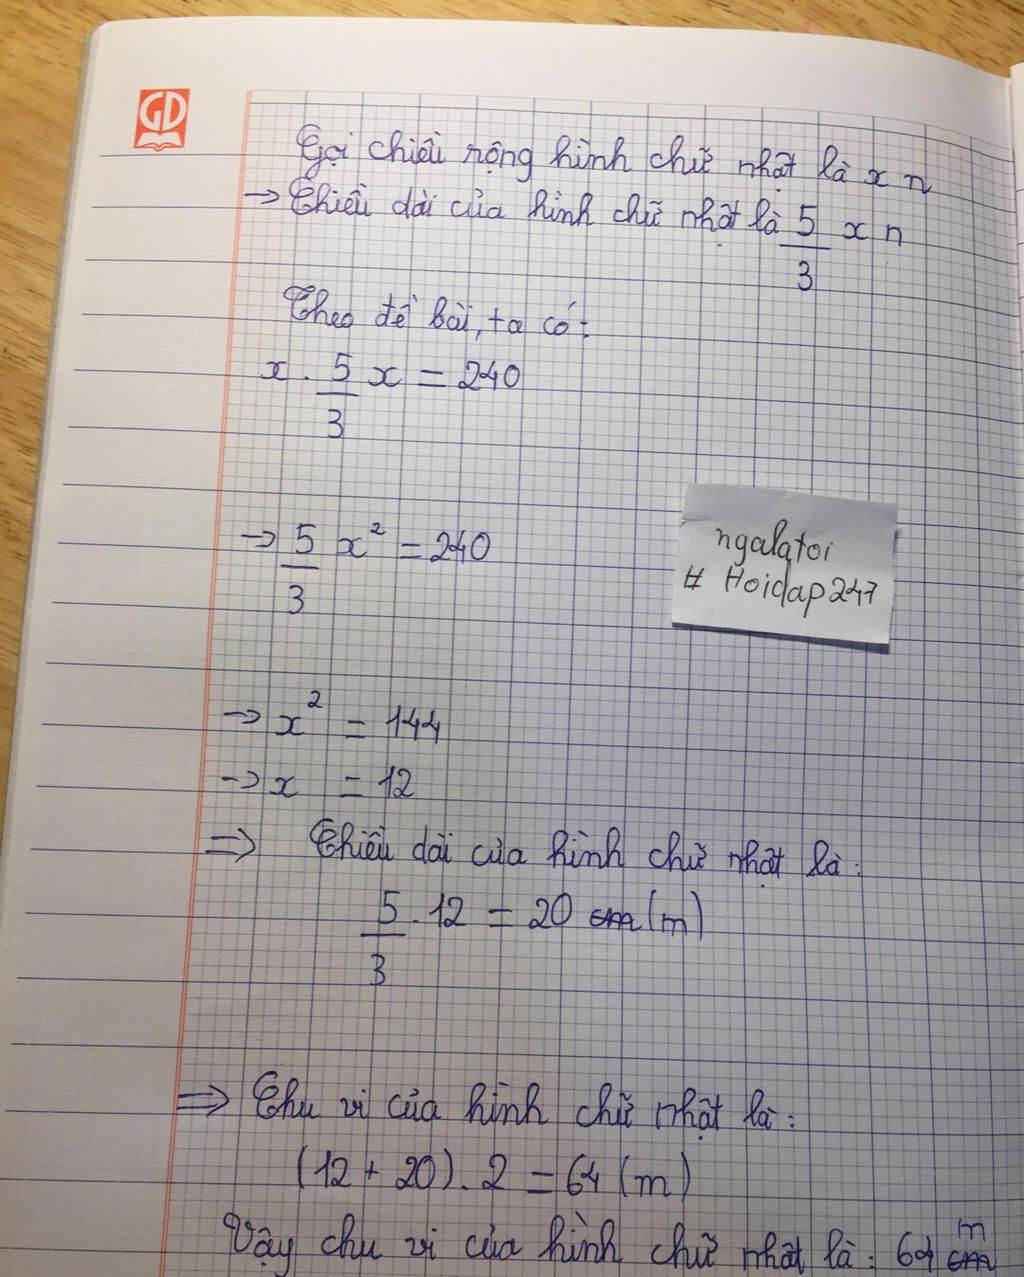 GD
Gọi chiều rộng hình chữ nhật là x n
→ Chiều dài của hình chữ nhật là 5/3 x n
Theo đề bài, ta có:
x . 5/3 x = 240
→ 5/3 x² = 240
ngalatoi
# Hoidap247
→ x² = 144
→ x = 12
⇒ Chiều dài của hình chữ nhật là:
5/3 . 12 = 20 cm (m)
⇒ Chu vi của hình chữ nhật là:
(12 + 20) . 2 = 64 (m)
Vậy chu vi của hình chữ nhật là: 64 cm m